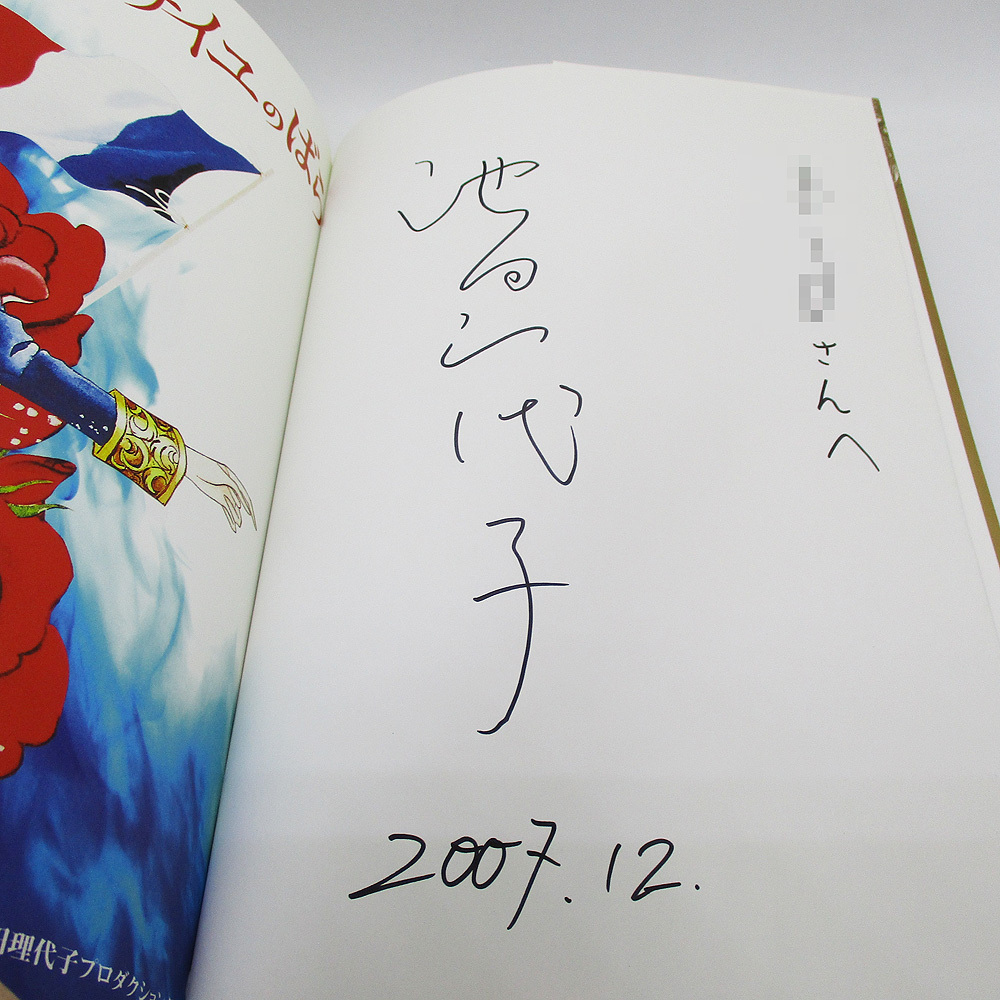 イユのばら
さんへ
池田理代子
2007.12.
田理代子プロダクション